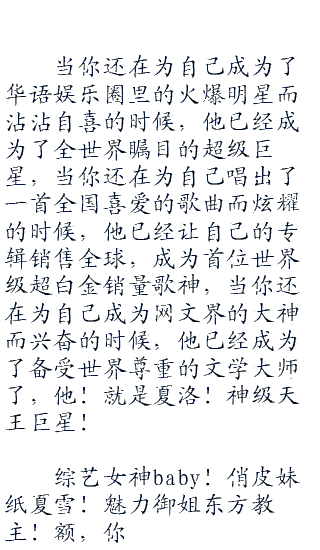 当你还在为自己成为了
华语娱乐圈里的火爆明星而
沾沾自喜的时候，他已经成
为了全世界瞩目的超级巨
星，当你还在为自己唱出了
一首全国喜爱的歌曲而炫耀
的时候，他已经让自己的专
辑销售全球，成为首位世界
级超白金销量歌神，当你还
在为自己成为网文界的大神
而兴奋的时候，他已经成为
了备受世界尊重的文学大师
了，他！就是夏洛！神级天
王巨星！
综艺女神baby！俏皮妹
纸夏雪！魅力御姐东方教
主！额，你